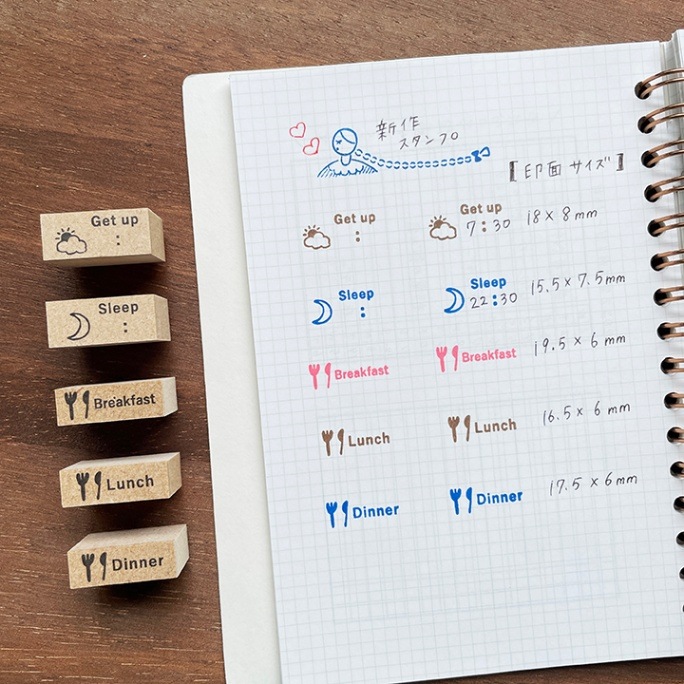 新作
スタンプ
【印面サイズ】
Get up
:
Get up
:
Get up
7:30
18×8mm
Sleep
:
Sleep
:
Sleep
22:30
15.5×7.5mm
Breakfast
Breakfast
Breakfast
19.5×6mm
Lunch
Lunch
Lunch
16.5×6mm
Dinner
Dinner
Dinner
17.5×6mm